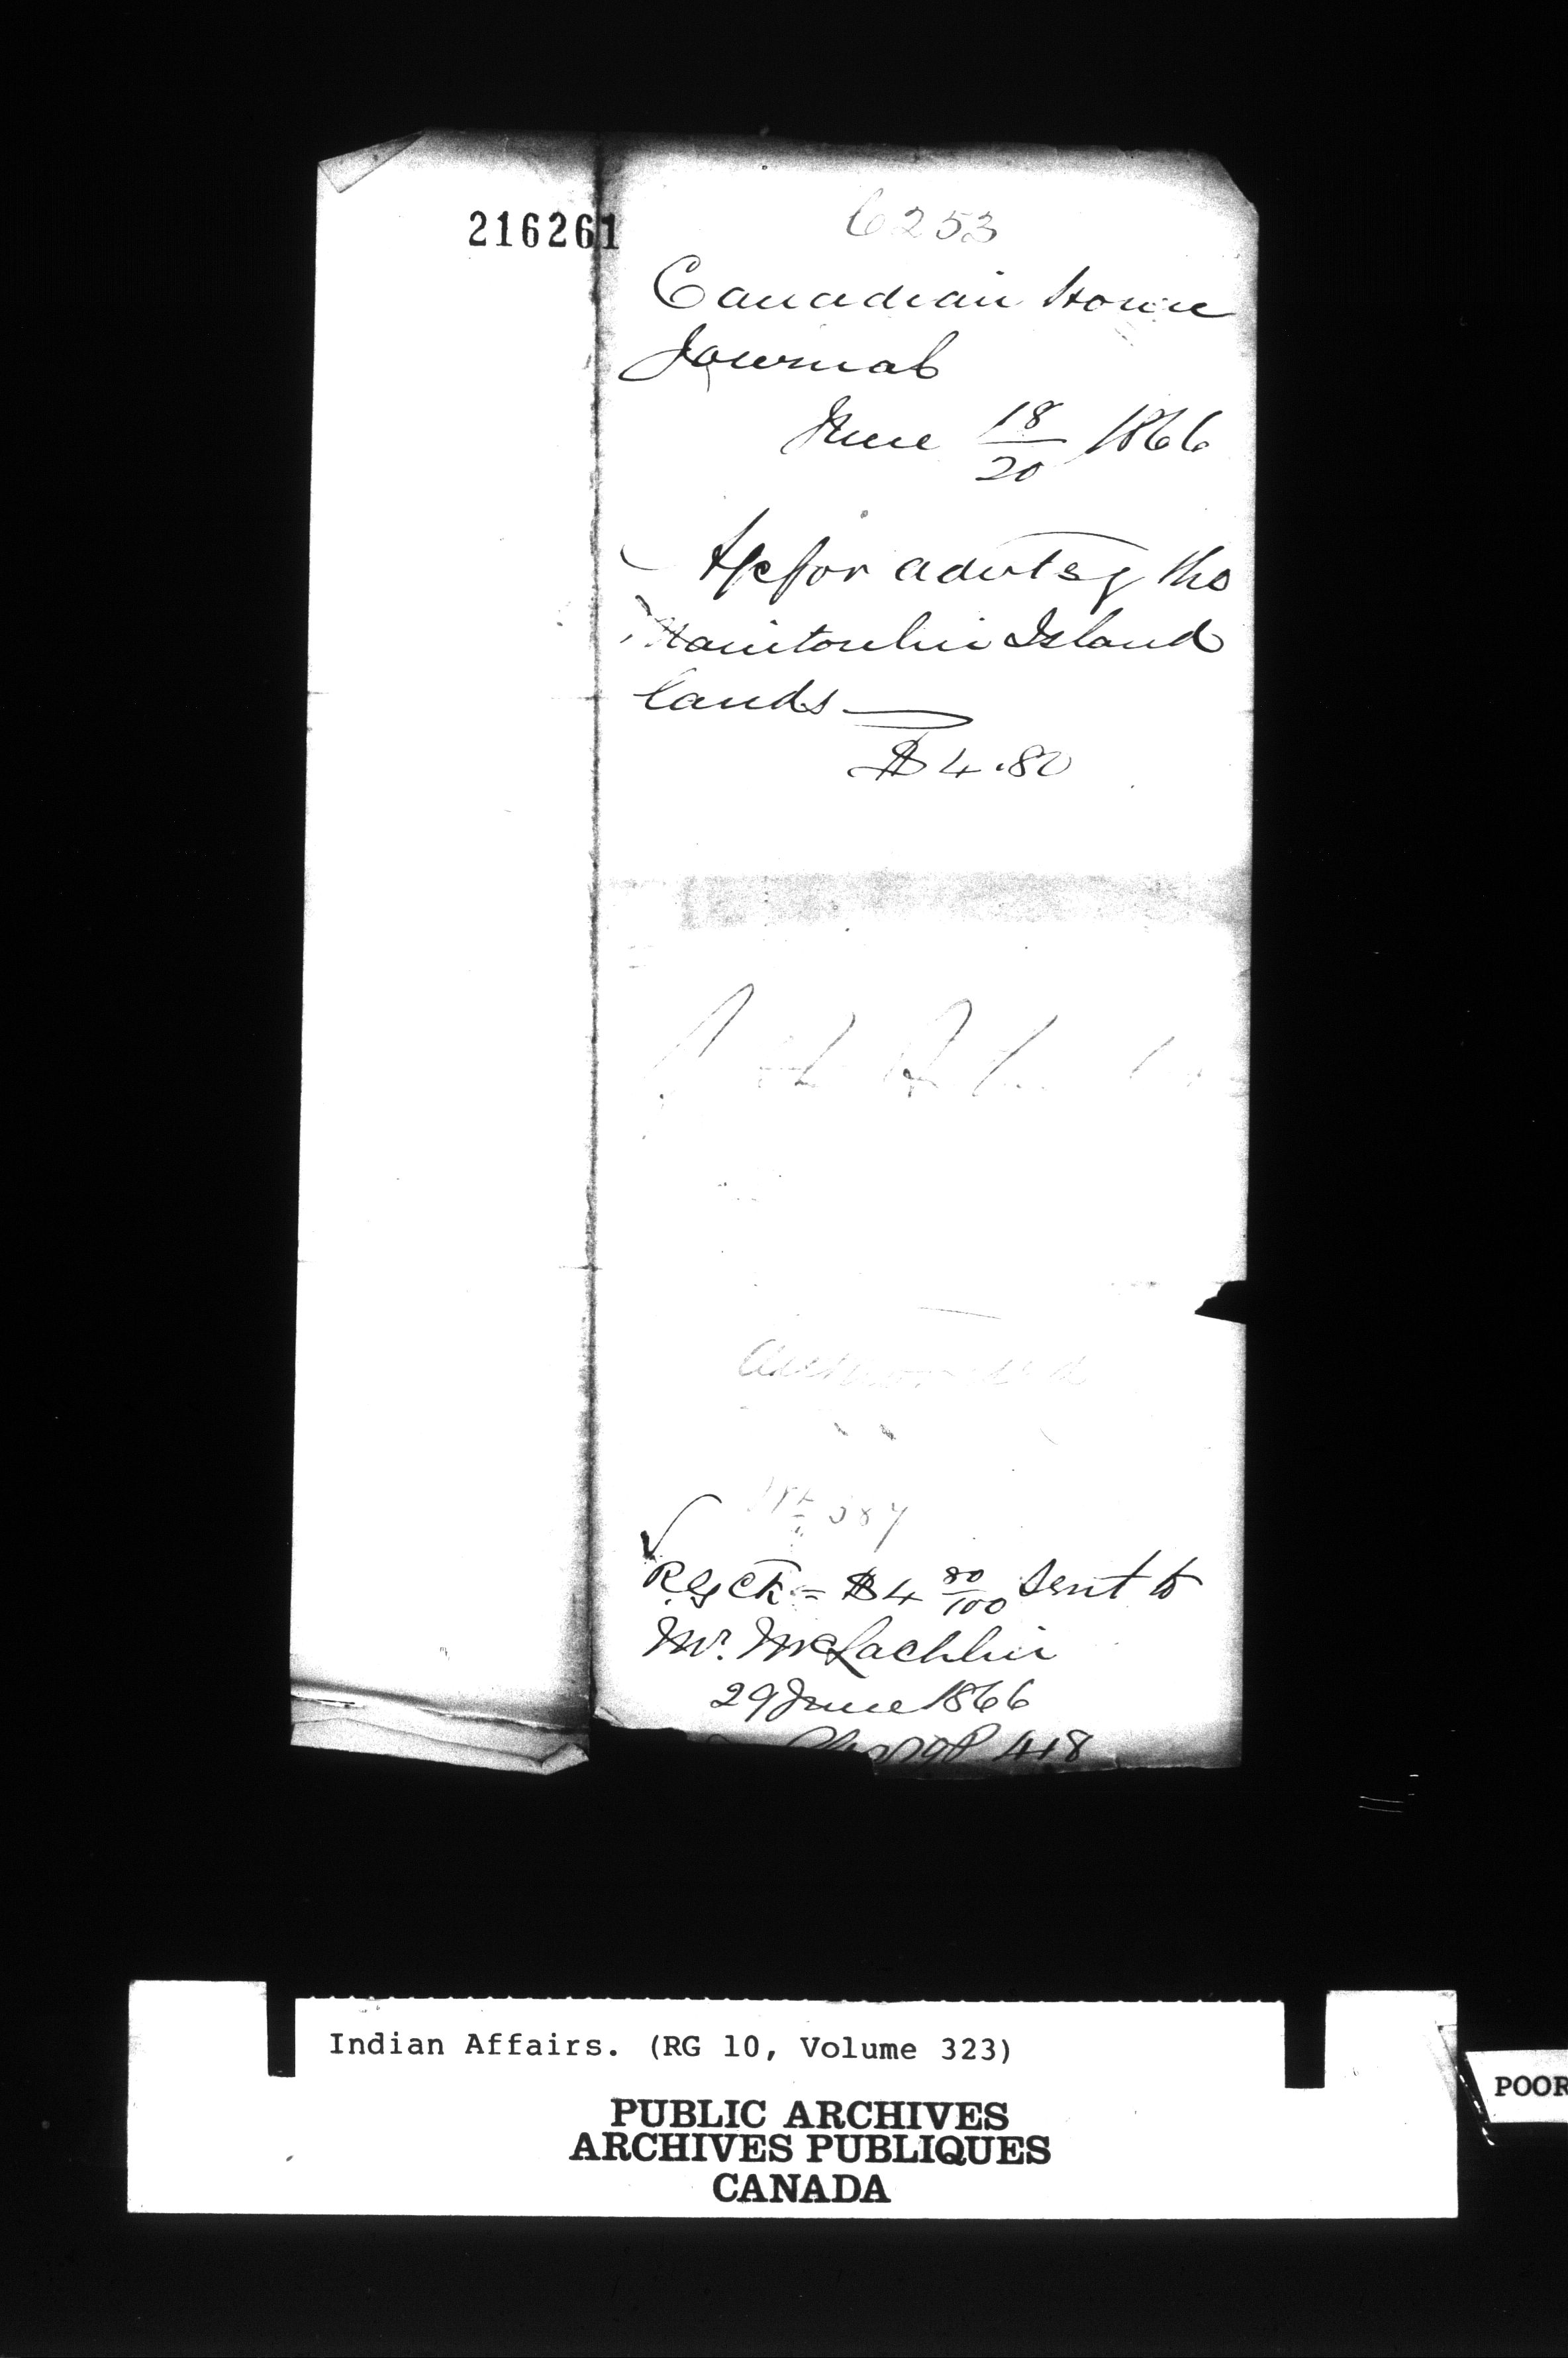 216261
6253
Canadian Home
Journal
June 18/20 1866
A/c for advtsg the
Manitoulin Island
lands —
$4.80
Authorized
387
Rcy Ck = $4 80/100 sent to
Mr. McLachlin
29 June 1866
418
Indian Affairs. (RG 10, Volume 323)
PUBLIC ARCHIVES
ARCHIVES PUBLIQUES
CANADA
POOR